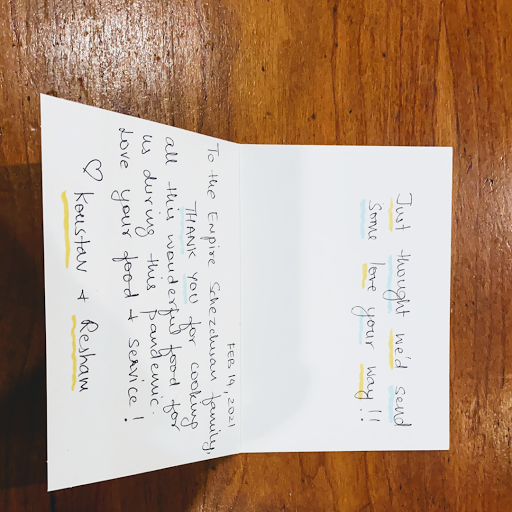 Just thought we'd send
some love your way!!
FEB 14, 2021
To the Empire Schezchwan family,
THANK YOU for cooking
all this wonderful food for
us during this pandemic.
Love your food & service!
♡ Koustav & Resham